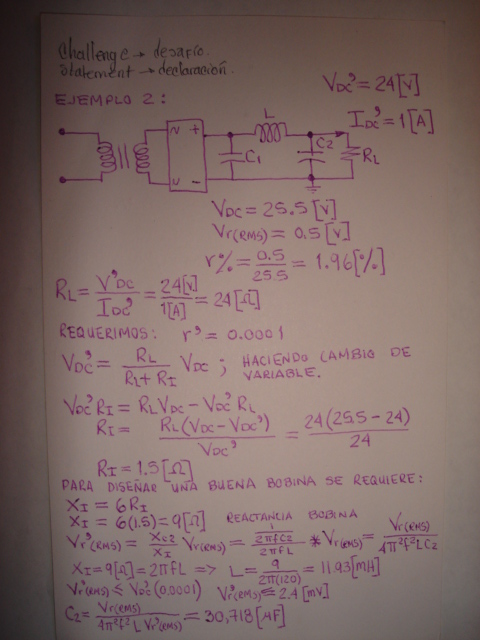 Challenge → desafío.
Statement → declaración.
VDC' = 24[V]
EJEMPLO 2:
IDC' = 1[A]
L
N +
C1
C2
RL
N -
VDC = 25.5[V]
Vr(RMS) = 0.5[V]
r% = 0.5/25.5 = 1.96[%]
RL = V'DC/IDC' = 24[V]/1[A] = 24[Ω]
REQUERIMOS: r' = 0.0001
VDC' = RL/(RL + RI) VDC ; HACIENDO CAMBIO DE
VARIABLE.
VDC' RI = RL VDC - VDC' RL
RI = RL(VDC - VDC')/VDC' = 24(25.5 - 24)/24
RI = 1.5[Ω]
PARA DISEÑAR UNA BUENA BOBINA SE REQUIERE:
XI = 6RI
XI = 6(1.5) = 9[Ω] REACTANCIA BOBINA
Vr'(RMS) = XC2/XI Vr(RMS) = (1/2πfC2)/2πfL * Vr(RMS) = Vr(RMS)/4π²f²LC2
XI = 9[Ω] = 2πfL ⇒ L = 9/2π(120) = 11.93[mH]
Vr'(RMS) ≤ VDC'(0.0001) Vr'(RMS) ≤ 2.4[mV]
C2 = Vr(RMS)/4π²f²L Vr'(RMS) = 30,718[μF]